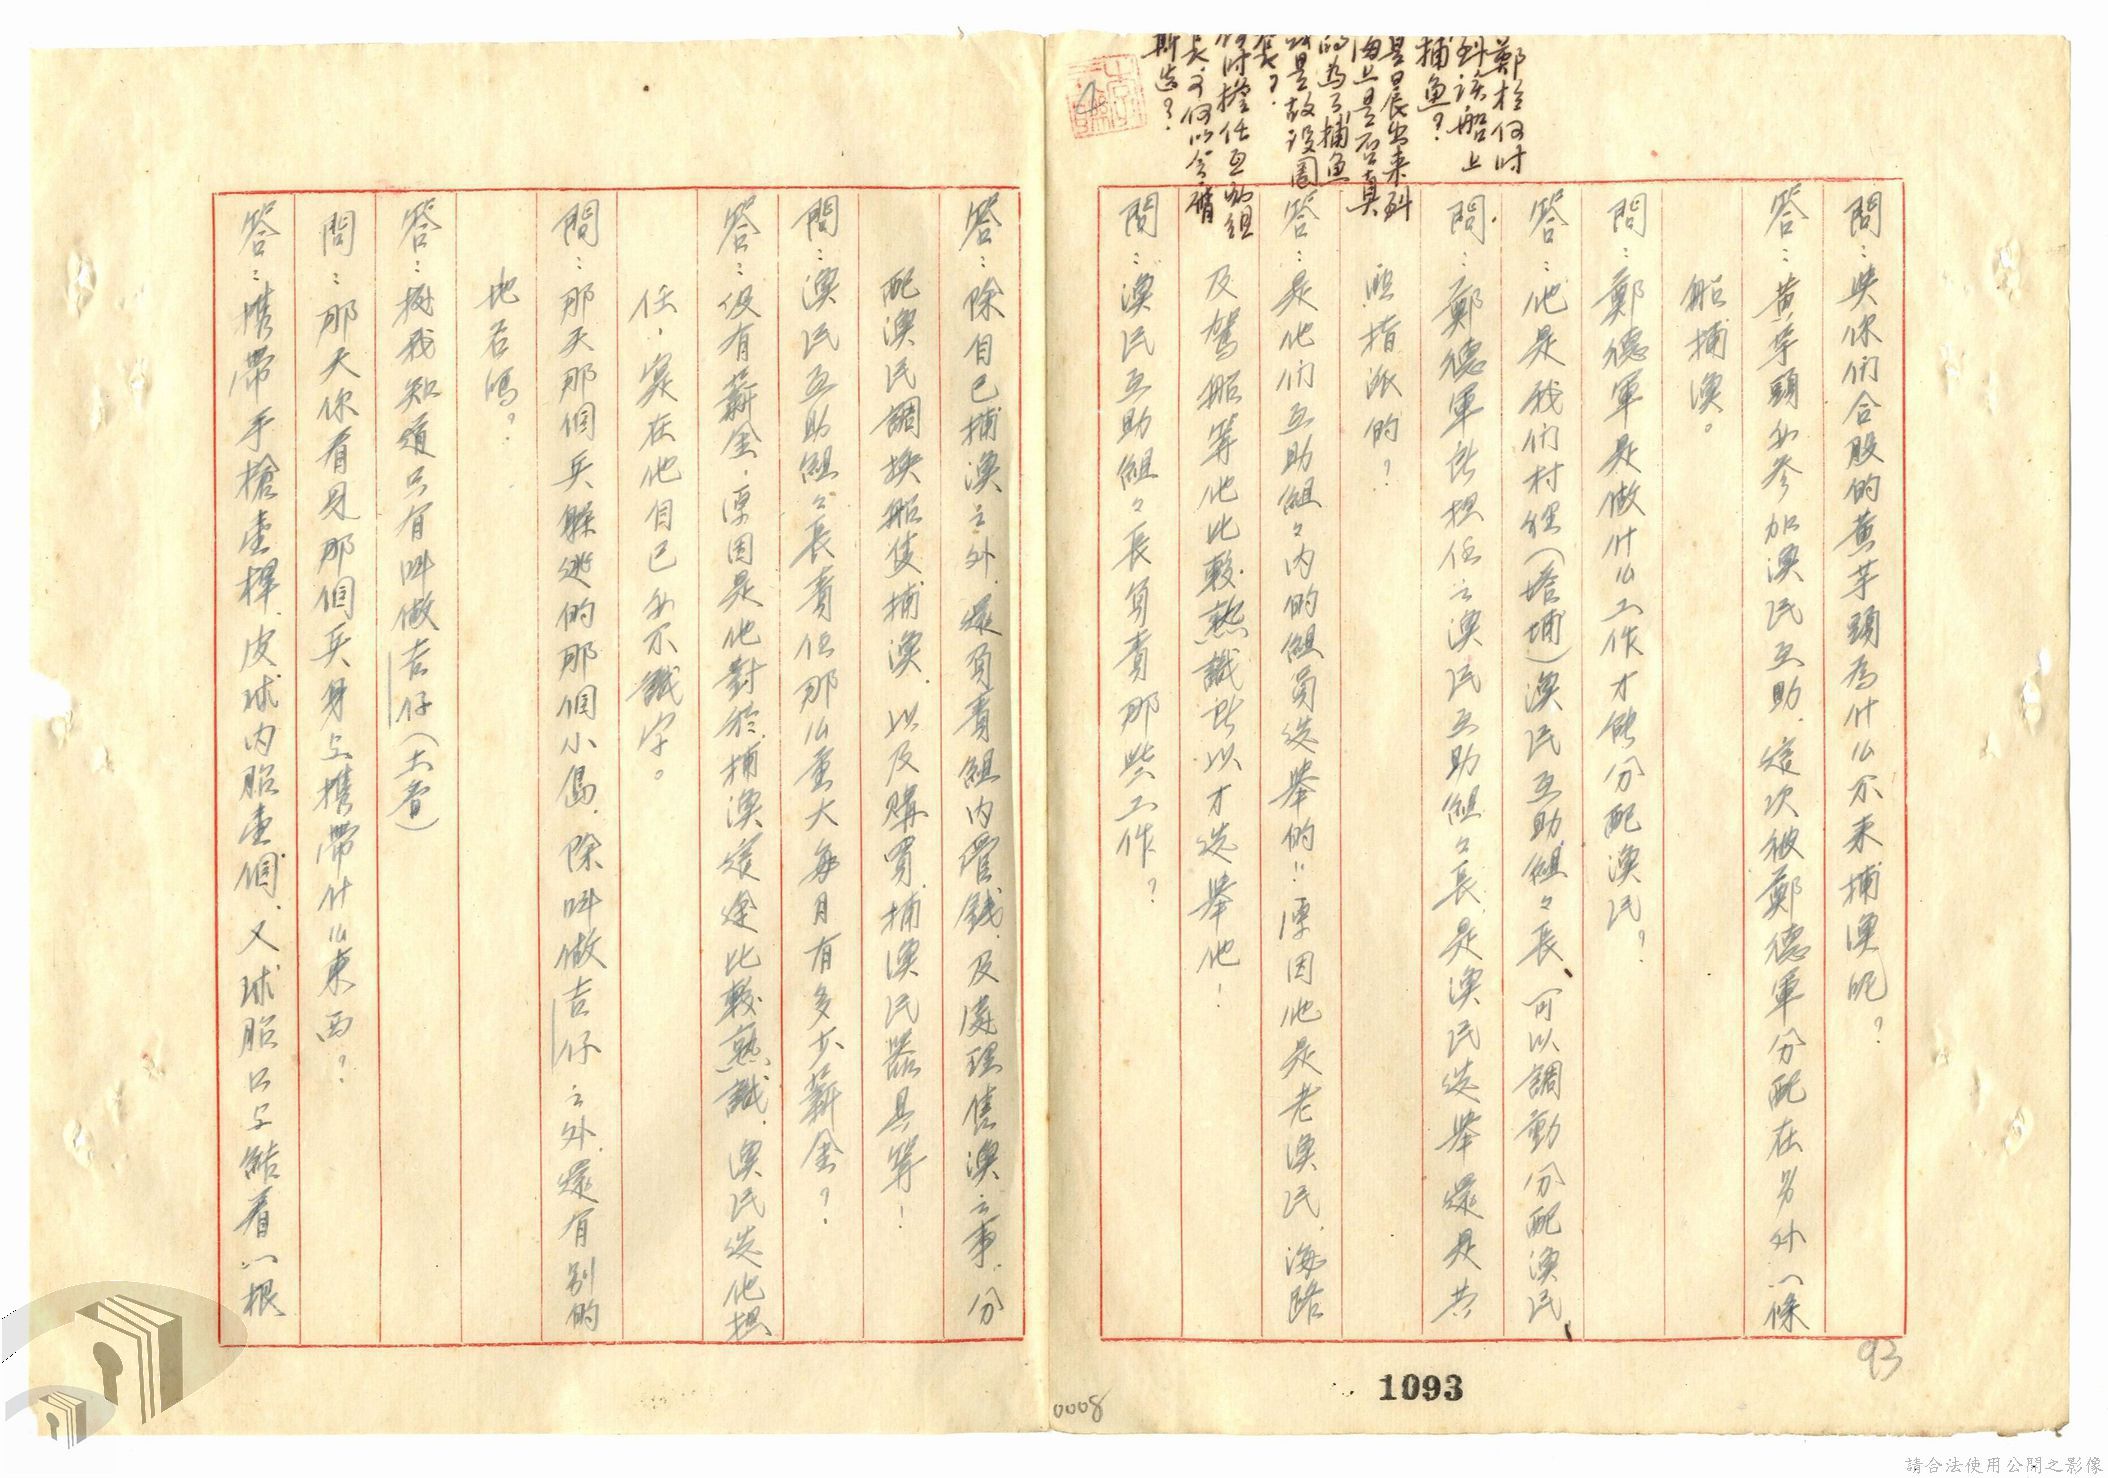 鄭於何時
到該船上
捕魚？
是日晨出來到
海上是否真
的為了捕魚
或是故設圈
套？
何時擔任互助組
長？何以會廣
斯造？
問：與你們合股的黃芋頭為什么不來捕漁呢？
答：黃芋頭也參加漁民互助，這次被鄭德軍分配在另外一條
船捕漁。
問：鄭德軍是做什么工作才能分配漁民？
答：他是我們村經(塔埔)漁民互助組々長、可以調動分配漁民
問：鄭德軍所担任之漁民互助組々長，是漁民选舉還是共
匪指派的？
答：是他们互助組々内的組員选舉的!!原因他是老漁民，海路
及駕船等他比較熟識所以才选舉他！
問：漁民互助組々長負責那些工作？
答：除自己捕漁之外，還負責組内管錢，及處理售漁之事，分
配漁民調换船隻捕漁，以及購買捕漁民器具等！
問：漁民互助組々長責任那么重大每月有多少薪金？
答：沒有薪金，原因是他對於捕漁這途比較熟識，漁民选他担
任，寔在他自己也不識字。
問：那天那個兵躲逃的那個小島，除叫做吉仔之外，還有别的
地名嗎？
答：挭我知道只有叫做吉仔(土音)
問：那天你看見那個兵身上携帶什么東西？
答：携帶手槍壹桿，皮球内胎壹個，又球胎口上結着一根
93
1093
0008
請合法使用公開之影像